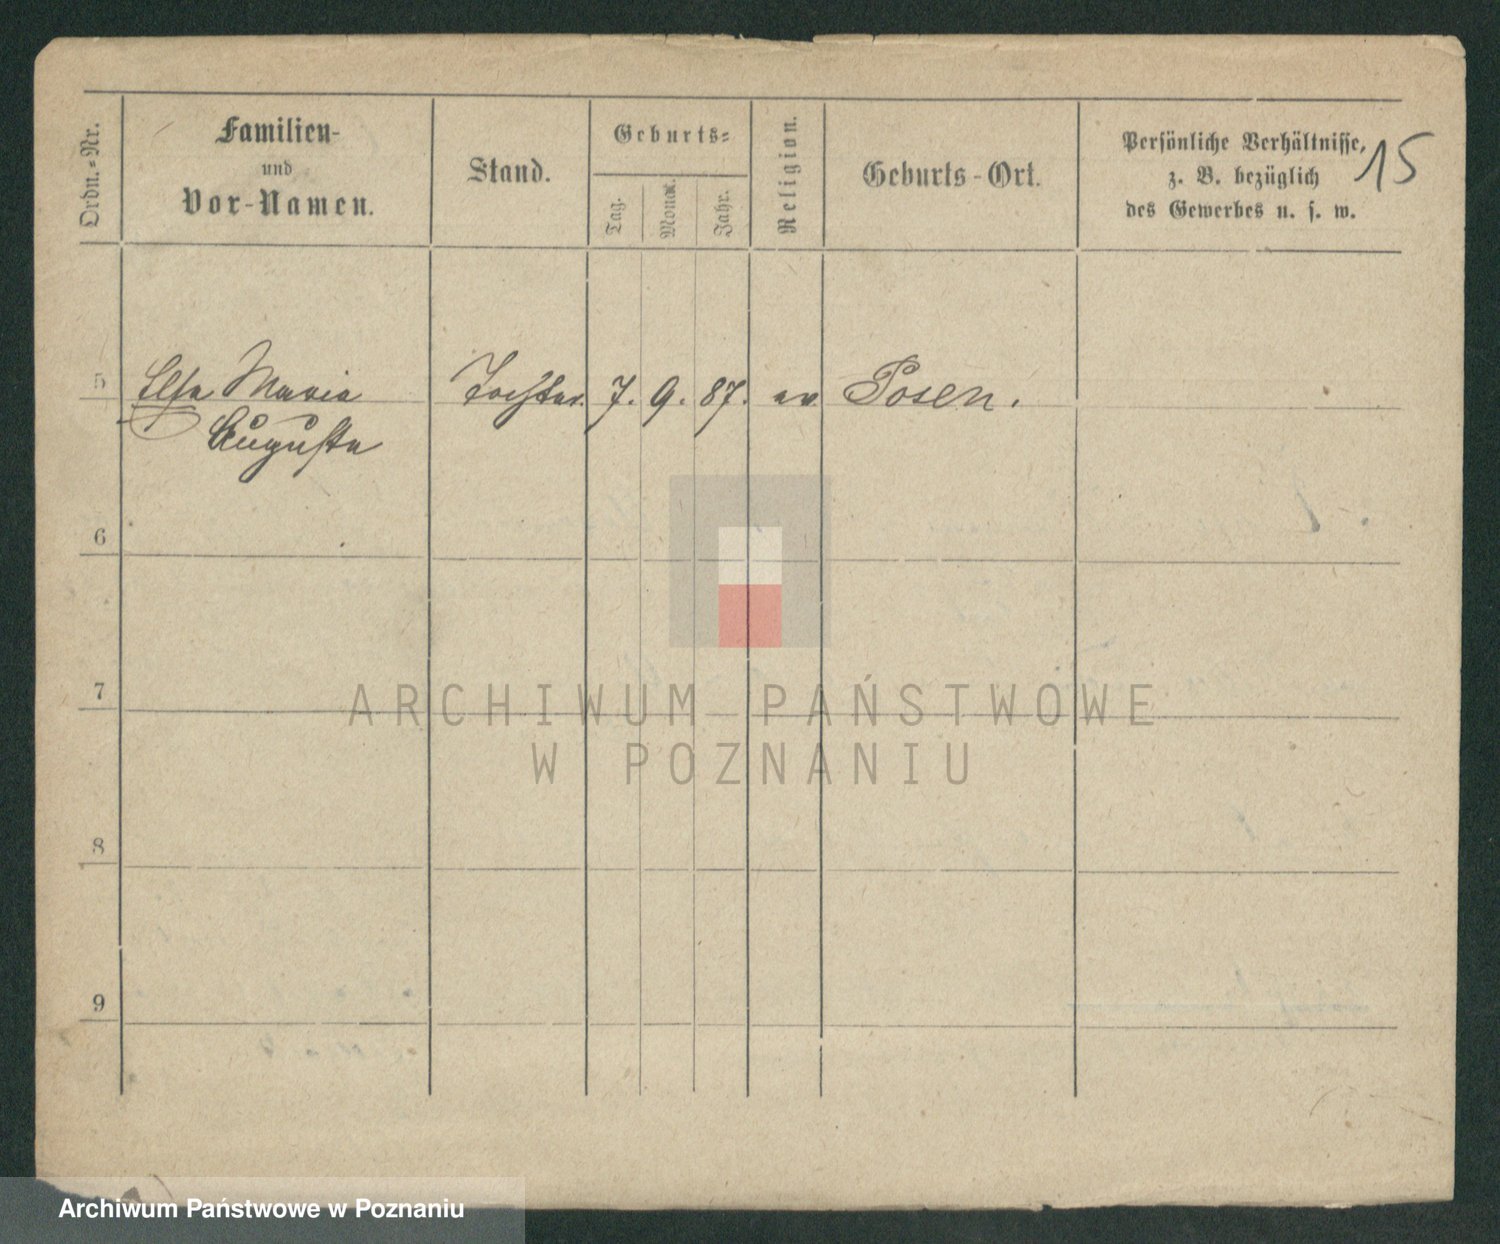 Ordn.-Nr.
Familien-
und
Vor-Namen.
Stand.
Geburts-
Tag.
Monat.
Jahr.
Religion.
Geburts-Ort.
Persönliche Verhältnisse,
z. B. bezüglich
des Gewerbes u. s. w.
15
5 Elsa Maria Tochter. 7. 9. 87. ev Posen.
Auguste
6
7
8
9
ARCHIWUM PAŃSTWOWE
W POZNANIU
Archiwum Państwowe w Poznaniu